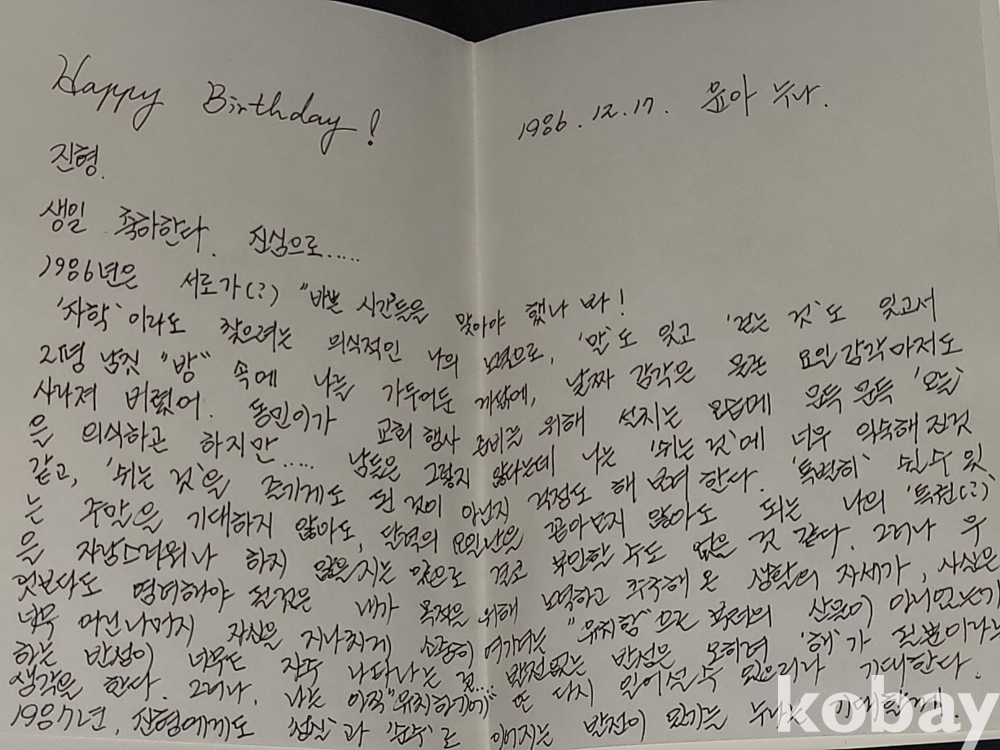 Happy Birthday!
1986. 12. 17. 윤아 누나.
진형.
생일 축하한다. 진심으로.....
1986년은 서로가(?) "바쁜 시간들을 맞아야 했나 봐!
'자학'이라도 찾으려는 의식적인 나의 노력으로, '말'도 잊고 '걷는 것'도 잊고서
2평 남짓 "방" 속에 나를 가두어둔 게
날짜 감각은 물론 요일감각마저도
사라져 버렸어. 동민이가 교회 행사 준비를 위해 설치는 모습에 문득 문득 '오늘'
을 의식하곤 하지만..... 남들은 그렇지 않다는데 나는 '쉬는 것'에 너무 익숙해 진것
같고, '쉬는 것'을 즐기게도 된 것이 아닌지 걱정도 해 보며 한다. '특별히' 쉴 수 있
는 주말을 기대하지 않아도, 달력의 요일난은 꼽아보지 않아도 되는 나의 '특권(?)'
을 자랑스러워나 하지 않을지는 앞으로 결코 부인할 수도 없을 것 같다. 그러나 무
엇보다도 염려해야 된것은 내가 목적을 위해 노력하고 추구해 온 생활의 자세가, 사실은
너무 어린나머지 자신을 지나치게 소중히 여기려는 "유치함"으로 부터의 산물이 아니었는가
하는 반성이 너무도 자주 나타나는 걸... 발전없는 반성은 오히려 '해'가 된 뿐이라는
생각을 한다. 그러나, 나는 아직 "유치하기에" 또 다시 일어설 수 있으리라 기대한다.
1987년, 진형에게도 '성실'과 '순수'로 이어지는 발전이 있기를 누나는 기대할게.
kobay